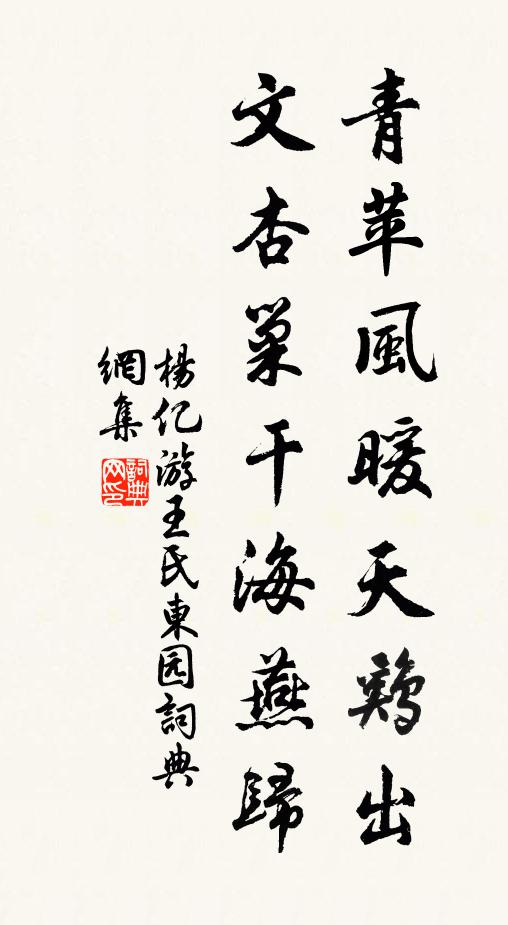 青苹風暖天鷄出
文杏巢干海燕歸
楊亿游王氏東园詞典
網集
詞典網印